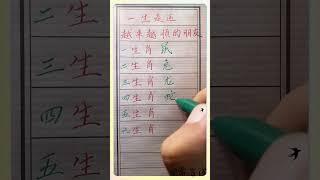 一生走运
越来越顺的朋友
一生肖 鼠
二生肖 兔
三生肖 龙
四生肖 蛇
五生肖
六生肖